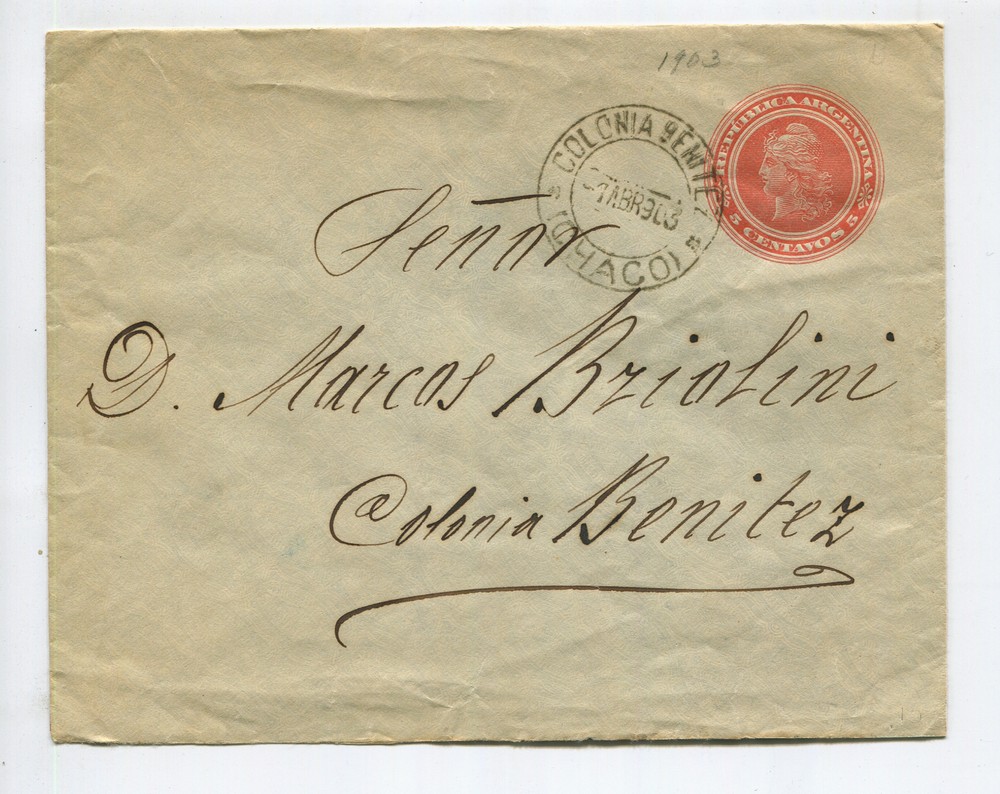 1903
REPÚBLICA ARGENTINA
5 CENTAVOS 5
COLONIA BENITEZ
ABR 903
(CHACO)
Señor
D. Marcos Briolini
Colonia Benitez